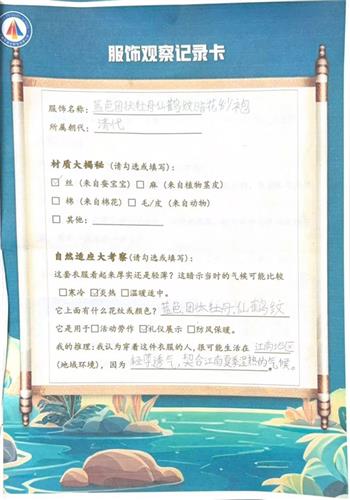 服饰观察记录卡
服饰名称：蓝色团状牡丹仙鹤纹暗花纱袍
所属朝代：清代
材质大揭秘（请勾选或填写）：
☑丝（来自蚕宝宝）□麻（来自植物茎皮）
□棉（来自棉花）□毛/皮（来自动物）
□其他：
自然适应大考察（请勾选或填写）：
这套衣服看起来厚实还是轻薄？这暗示当时的气候可能比较
□寒冷☑炎热□温暖适中。
它上面有什么花纹或颜色？蓝色团状牡丹，仙鹤纹
它是用于□活动劳作☑礼仪展示□防风保暖。
我的推理：我认为穿着这件衣服的人，很可能生活在江南地区
（地域环境），因为轻薄透气，契合江南夏季湿热的气候。